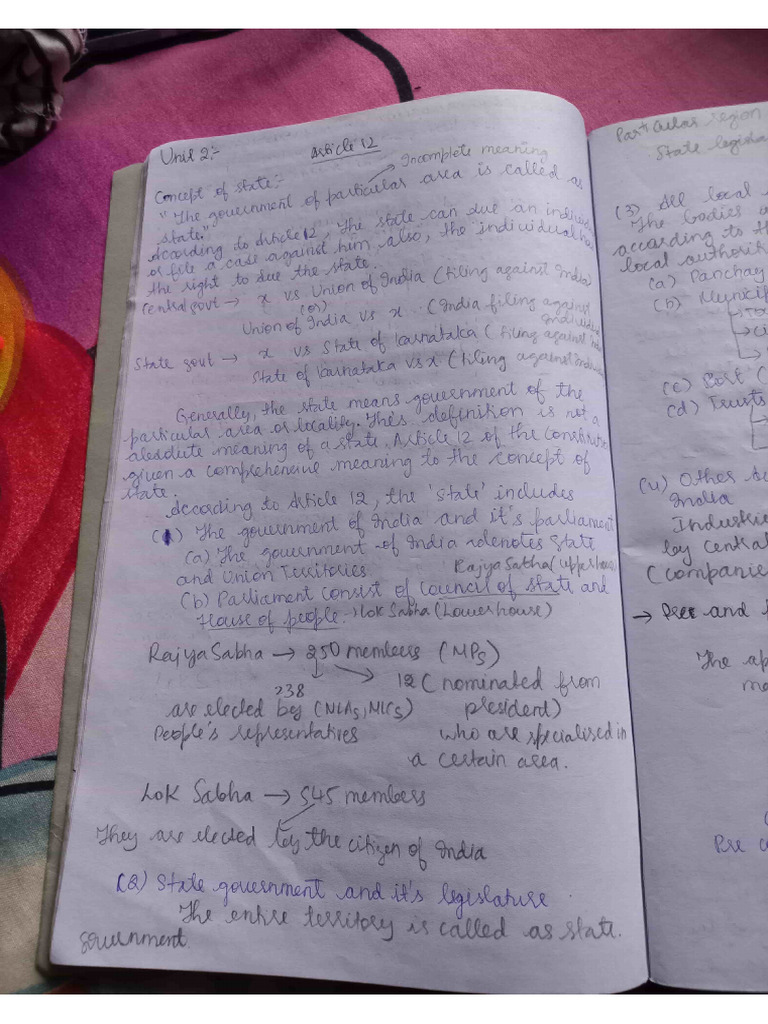 Unit 2:-
Article 12
Incomplete meaning
Concept of state:-
"The government of particular area is called as
state."
According to Article 12, The state can sue an individual
or file a case against him also, the individual has
the right to sue the state.
Central govt → x vs Union of India (filing against India)
(or)
Union of India vs x . (India filing against
individual
State govt → x vs State of Karnataka (filing against
State of Karnataka vs x (filing against
Generally, the state means government of the
particular area or locality. This definition is not a
absolute meaning of a state. Article 12 of the Constitution
given a comprehensive meaning to the concept of
state.
According to Article 12, the 'state' includes
(1) The government of India and it's parliament
(a) The government of India denotes State
and Union Territories
Rajya Sabha (upper house)
(b) Parliament consist of Council of state and
House of people. → Lok Sabha (Lower house)
Rajya Sabha → 250 members (MPs)
238
12 (nominated from
are elected by (MLAs, MLCs)
president)
People's representatives
who are specialised in
a certain area.
Lok Sabha → 545 members
They are elected by the citizen of India
(2) State government and it's legislature
The entire territory is called as state
government.
Particular region
State
(3) All local
The bodies
according to th
local authorit
(a) Panchay
(b) Municip
(c)
(d) Trusts
(4) Other
India
Industrie
by Central
(companie
→ Pre and
The ap
Pre